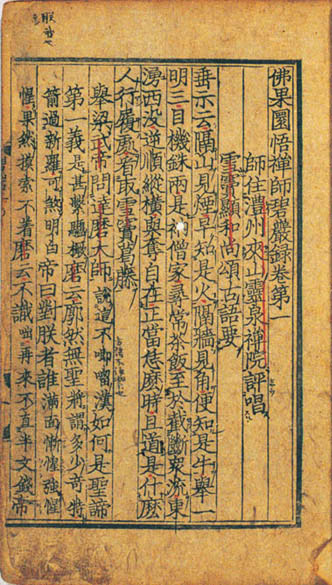 佛果圜悟禪師碧巖錄卷第一
師住澧州夾山靈泉禪院評唱
雪竇顯和尚頌古語要
垂示云隔山見煙早知是火隔牆見角便知是牛舉一
明三目機銖兩是僧家尋常茶飯至於截斷衆流東
湧西没逆順縱橫與奪自在正當恁麽時且道是什麽
人行履處看取雪竇葛藤
舉梁武帝問達磨大師說這不唧嚠漢如何是聖諦
第一義是甚繫驢橛磨云廓然無聖將謂多少奇特
箭過新羅可煞明白帝曰對朕者誰滿面慚惶強惺
惺果然摸索不着磨云不識咄再來不直半文錢帝